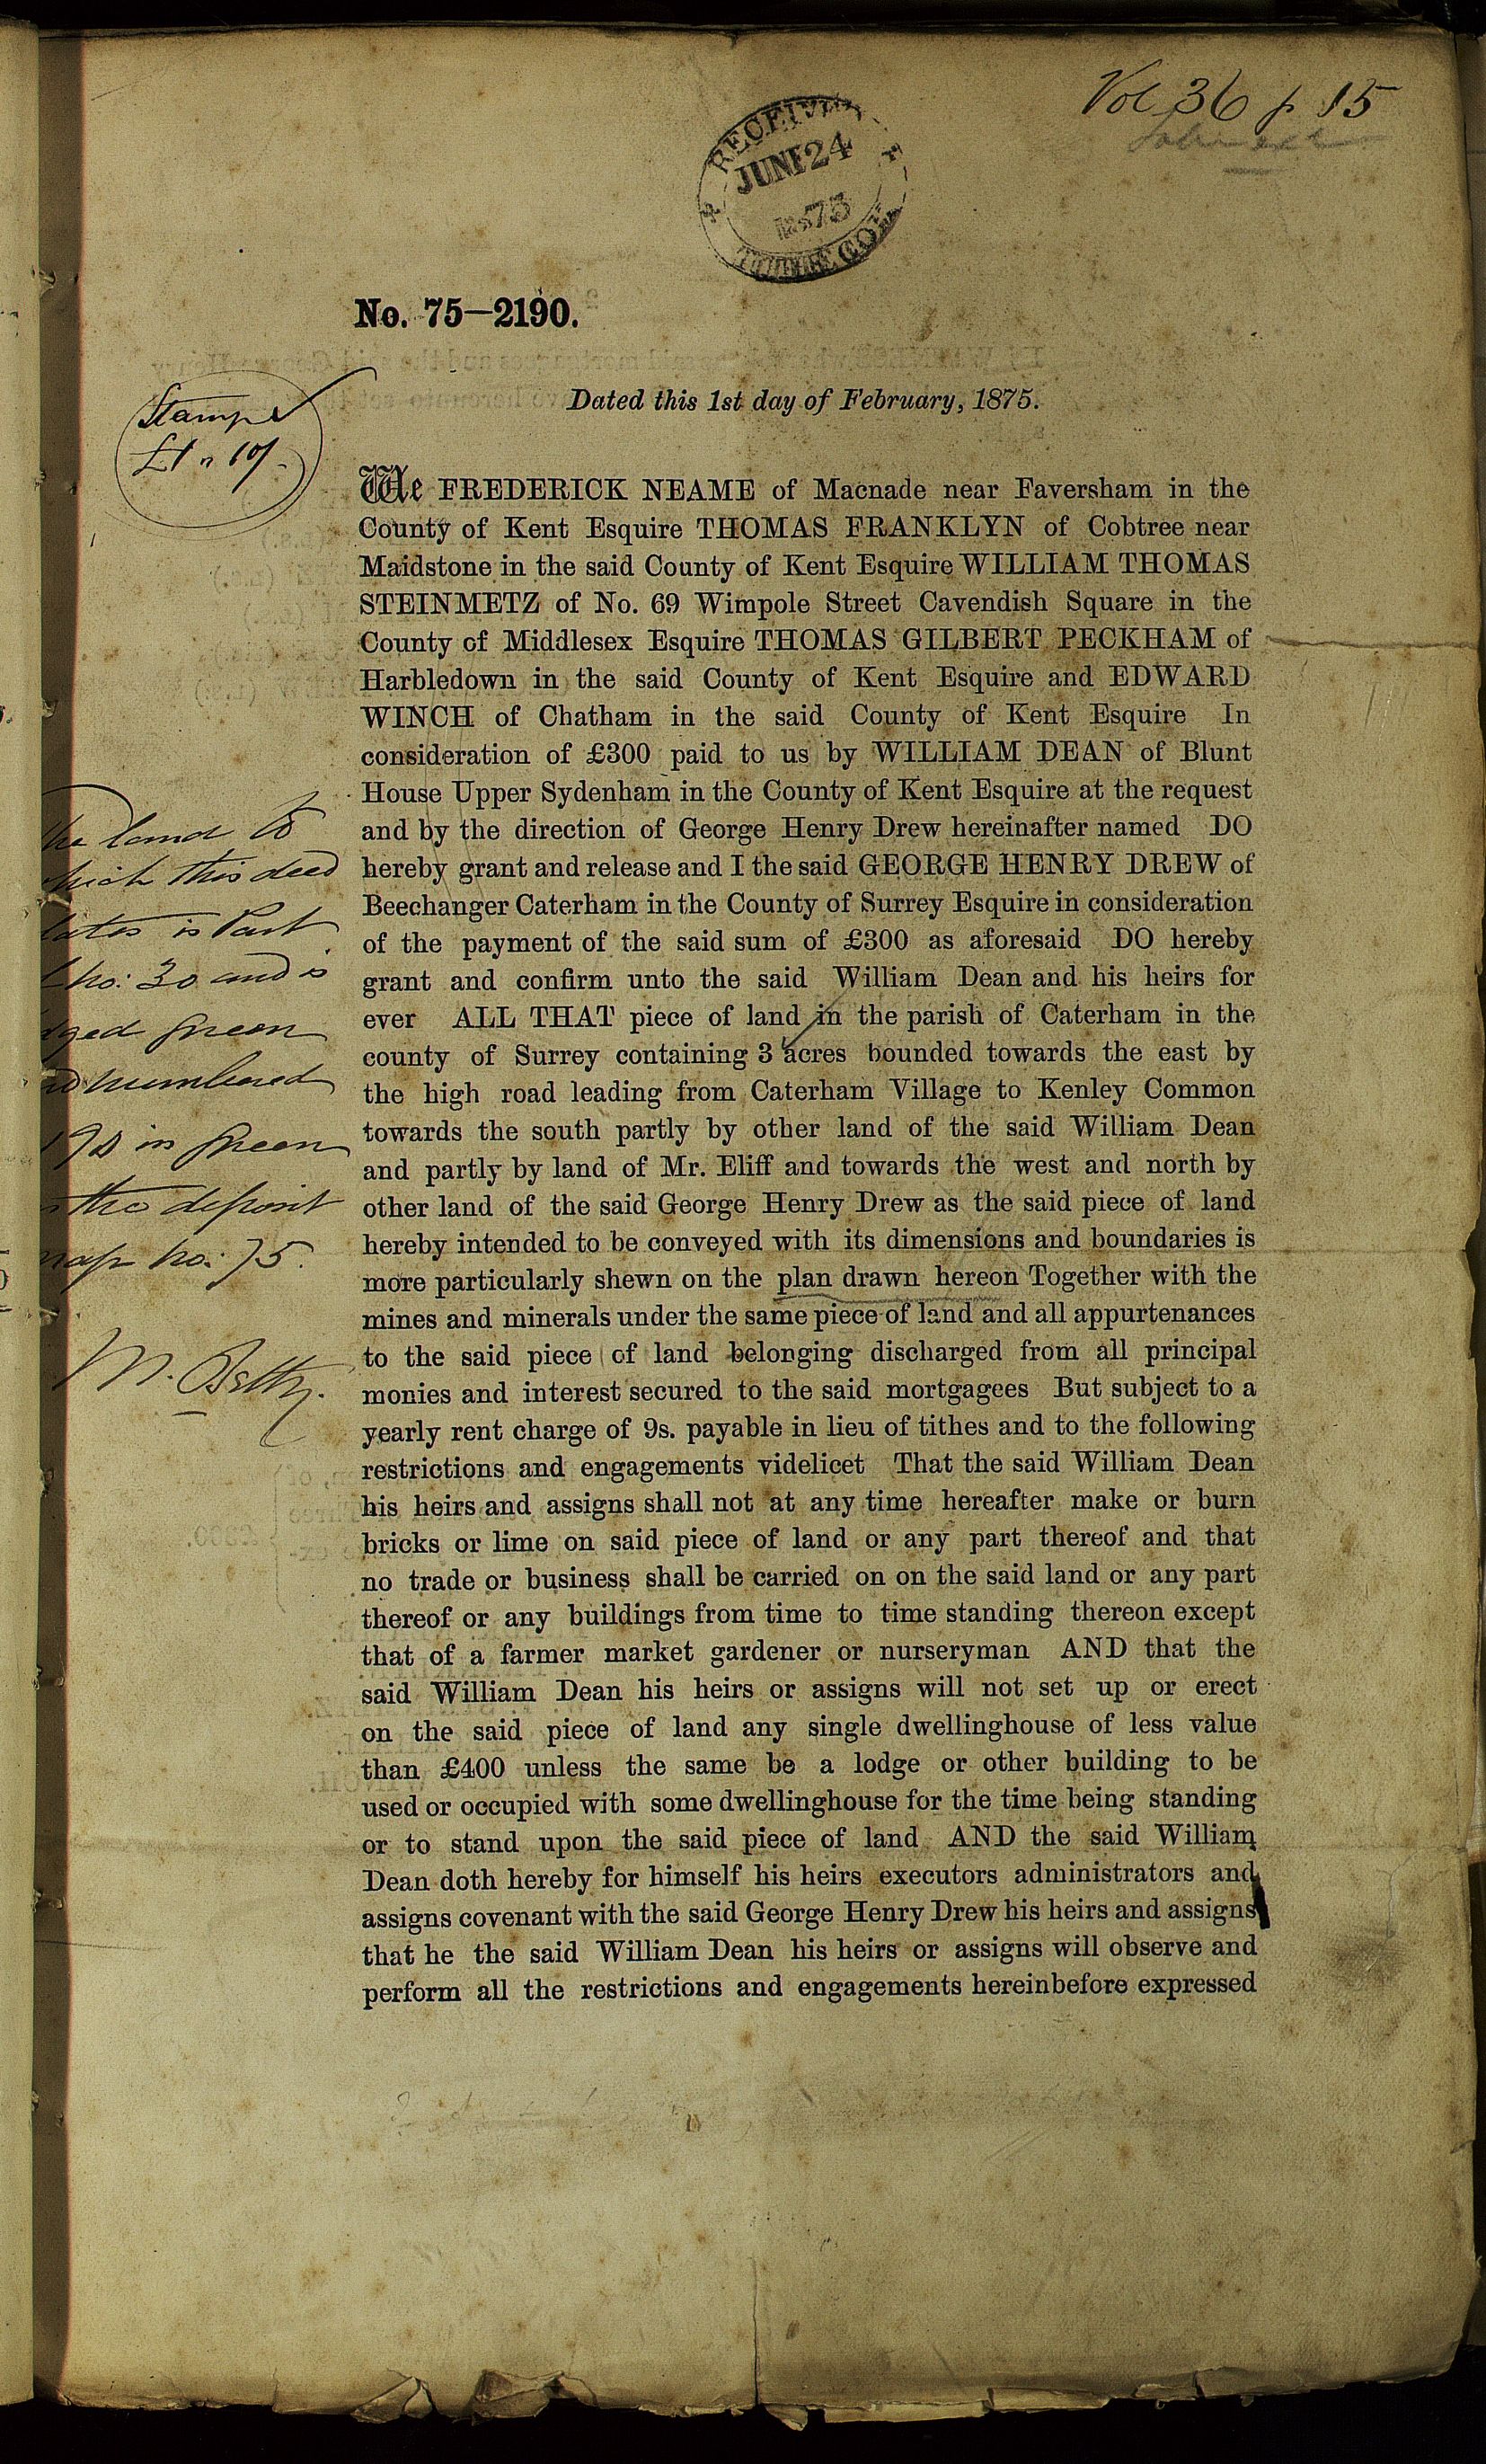 Vol 36 p 15
RECEIVED
JUNE 24
1875
No. 75—2190.
Dated this 1st day of February, 1875.
Stamp
£1 " 10/-
We FREDERICK NEAME of Macnade near Faversham in the
County of Kent Esquire THOMAS FRANKLYN of Cobtree near
Maidstone in the said County of Kent Esquire WILLIAM THOMAS
STEINMETZ of No. 69 Wimpole Street Cavendish Square in the
County of Middlesex Esquire THOMAS GILBERT PECKHAM of
Harbledown in the said County of Kent Esquire and EDWARD
WINCH of Chatham in the said County of Kent Esquire In
consideration of £300 paid to us by WILLIAM DEAN of Blunt
House Upper Sydenham in the County of Kent Esquire at the request
and by the direction of George Henry Drew hereinafter named DO
hereby grant and release and I the said GEORGE HENRY DREW of
Beechanger Caterham in the County of Surrey Esquire in consideration
of the payment of the said sum of £300 as aforesaid DO hereby
grant and confirm unto the said William Dean and his heirs for
ever ALL THAT piece of land in the parish of Caterham in the
county of Surrey containing 3 acres bounded towards the east by
the high road leading from Caterham Village to Kenley Common
towards the south partly by other land of the said William Dean
and partly by land of Mr. Eliff and towards the west and north by
other land of the said George Henry Drew as the said piece of land
hereby intended to be conveyed with its dimensions and boundaries is
more particularly shewn on the plan drawn hereon Together with the
mines and minerals under the same piece of land and all appurtenances
to the said piece of land belonging discharged from all principal
monies and interest secured to the said mortgagees But subject to a
yearly rent charge of 9s. payable in lieu of tithes and to the following
restrictions and engagements videlicet That the said William Dean
his heirs and assigns shall not at any time hereafter make or burn
bricks or lime on said piece of land or any part thereof and that
no trade or business shall be carried on on the said land or any part
thereof or any buildings from time to time standing thereon except
that of a farmer market gardener or nurseryman AND that the
said William Dean his heirs or assigns will not set up or erect
on the said piece of land any single dwellinghouse of less value
than £400 unless the same be a lodge or other building to be
used or occupied with some dwellinghouse for the time being standing
or to stand upon the said piece of land AND the said William
Dean doth hereby for himself his heirs executors administrators and
assigns covenant with the said George Henry Drew his heirs and assigns
that he the said William Dean his heirs or assigns will observe and
perform all the restrictions and engagements hereinbefore expressed
he land to
hich this deed
lates is Part
no: 30 and is
dged green
numbered
in green
the deposit
map no: 75.